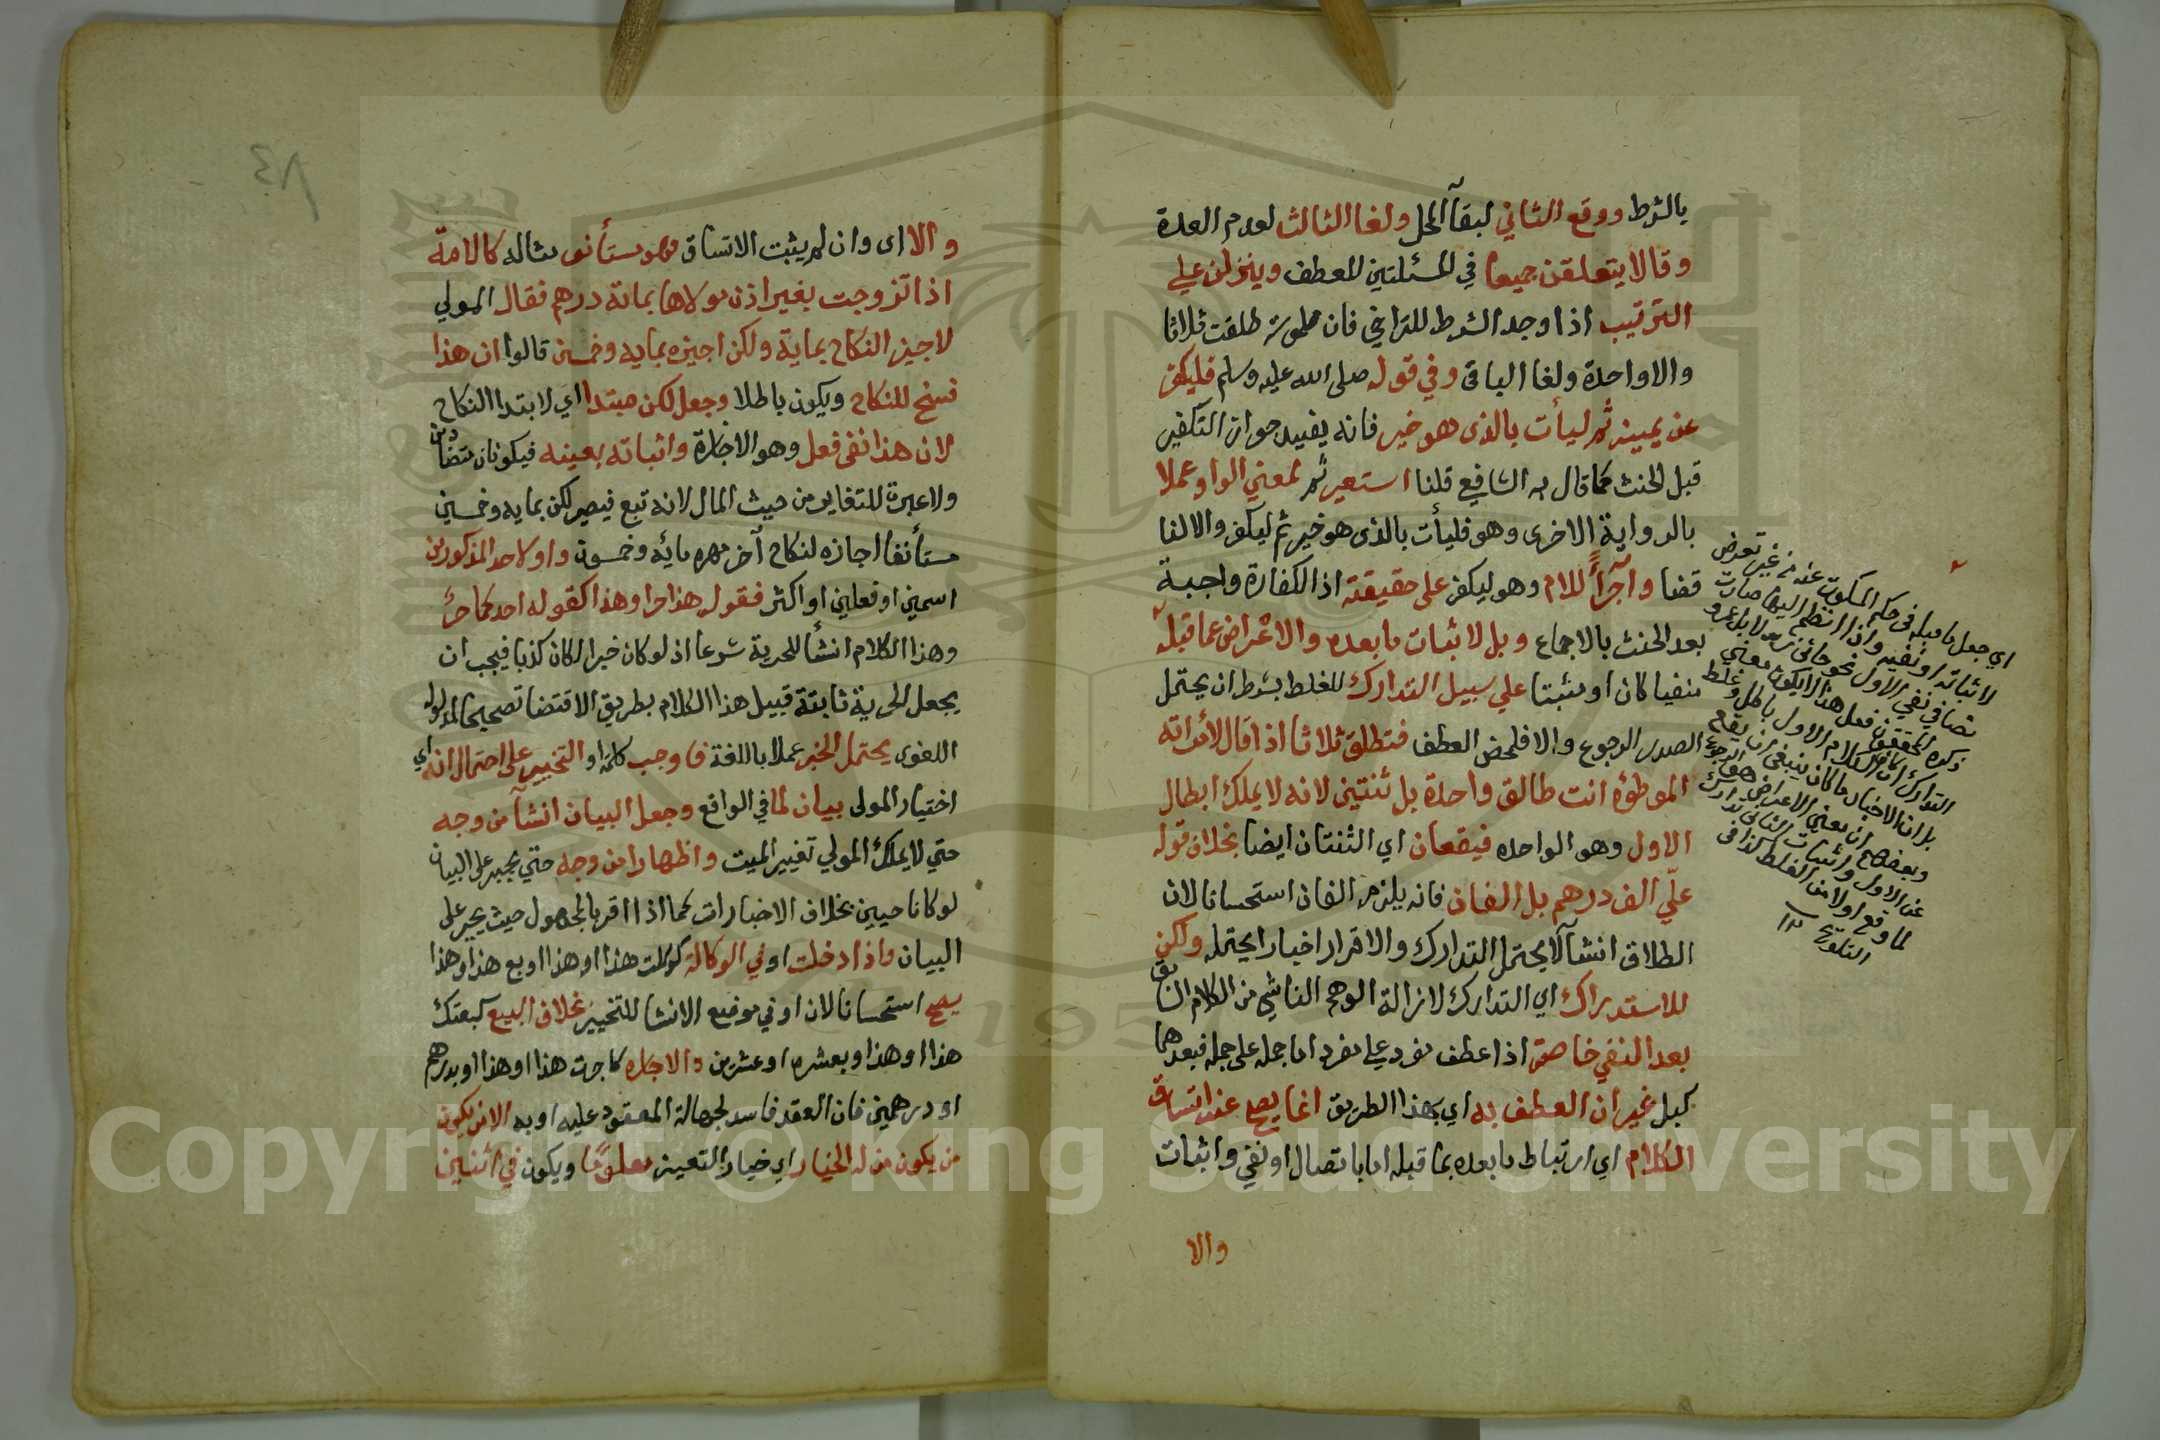 بالشرط ووقع الثاني لبقآ المحل ولغا الثالث لعدم العدة
وقالا يتعلقن جميعا في المسئلتين للعطف وينزلن علي
الترتيب اذا وجد الشرط للتراخي فان طلقت ثلاثا
والا واحدة ولغا الباقي وفي قوله صلى الله عليه وسلم فليكفر
عن يمينه ثم ليأت بالذى هو خير فانه يفيد جواز التكفير
قبل الحنث كما قال به الشافعي قلنا استعير ثم لمعني الواو عملا
بالرواية الاخرى وهو فليأت بالذى هو خير ثم ليكفر والا لغا
قضا وآجرآً للام وهو ليكفر على حقيقته اذ الكفارة واجبة
بعد الحنث بالاجماع وبل لاثبات ما بعده والاعراض عما قبله
منفيا كان او مثبتا علي سبيل التدارك للغلط بشرط ان يحتمل
الصدر الرجوع والا فلمحض العطف فتطلق ثلاثا اذا قال لأمراته
الموطؤه انت طالق واحدة بل ثنتين لانه لا يملك ابطال
الاول وهو الواحده فيقعان اي الثنتان ايضا بخلاف قوله
علّي الف درهم بل الفان فانه يلزمه الفان استحسانا لان
الطلاق انشآ لا يحتمل التدارك والاقرار اخبار يحتمله ولكن
للاستدراك اي التدارك لازالة الوهم الناشي من الكلام السابق
بعد النفي خاصة اذا عطف مفرد علي مفرد اما جمله على جمله فبعدهما
كبل غير ان العطف به اي بهذا الطريق انما يصح عند اتساق
الكلام اي ارتباط ما بعده بما قبله اما باتصال او نفي واثبات
والا
اي جعل ما قبله في حكم المسكوت عنه من غير تعرض
لاثباته او نفيه واذا انضم اليها صارت
نصا في نفي الاول نحو جائني زيد لا بل عمرو
ذكره المحققون فعلى هذا لا يكون معني
التدارك ان الكلام الاول باطل وغلط
بل ان الاخبار ما كان ينبغي ان يقع
وبعضهم ان معني الاعراض هو الرجوع
عن الاول واثبات الثاني تداركا
لما وقع اولا من الغلط كذا في
التلويح ١٢
والا اى وان لم يثبت الاتساق فهو مستأنف مثاله كالامة
اذا تزوجت بغير اذن مولاها بمائة درهم فقال المولي
لا اجيز النكاح بماية ولكن اجيزه بمايه وخمسين قالوا ان هذا
فسخ للنكاح ويكون باطلا وجعل لكن مبتدا اي لابتدا النكاح
لان هذا نفى فعل وهو الاجازة واثباته بعينه فيكونان متضادين
ولا عبرة للتغاير من حيث المال لانه تبع فيصير لكن بمايه وخمسين
مستأنفا اجازه لنكاح آخر مهره مائة وخمسون واو لاحد المذكورين
اسمين او فعلين او اكثر فقوله هذا حر او هذا كقوله احدكما حرّ
وهذا الكلام انشأ للحرية شرعا اذ لو كان خبرا لكان كذبا فيجب ان
يجعل الحرية ثابتة قبيل هذا الكلام بطريق الاقتضا تصحيحا لمدلوله
اللغوى يحتمل الخبر عملا باللغة فاوجب كلمة او التخيير على احتمال انه اي
اختيار المولى بيان لما في الواقع وجعل البيان انشآ من وجه
حتي لا يملك المولي تغيير الميت واظهارا من وجه حتي يجبر على البيان
لو كانا حيين بخلاف الاخبارات كما اذا اقر بالمجهول حيث يجبر على
البيان واذا دخلت او في الوكالة كوكلت هذا او هذا او بع هذا او هذا
يصح استحسانا لان او في موضع الانشا للتخيير بخلاف البيع كبعتك
هذا او هذا او بعشره او عشرين والاجاره كاجرت هذا او هذا او بدرهم
او درهمين فان العقد فاسد لجهالة المعقود عليه او به الا ان يكون
من يكون من له الخيار اي خيار التعيين معلومًا ويكون في اثنين
Copyright © King Saud University
1957